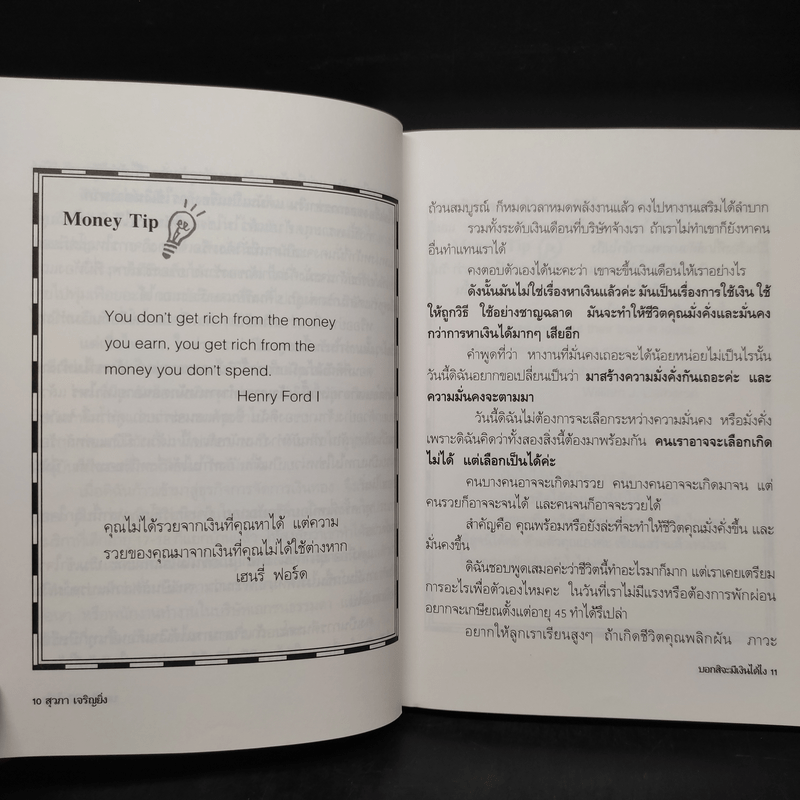 Money Tip
You don't get rich from the money
you earn, you get rich from the
money you don't spend.
Henry Ford I
คุณไม่ได้รวยจากเงินที่คุณหาได้ แต่ความ
รวยของคุณมาจากเงินที่คุณไม่ได้ใช้ต่างหาก
เฮนรี่ ฟอร์ด
10 สุวภา เจริญยิ่ง
ถ้วนสมบูรณ์ ก็หมดเวลาหมดพลังงานแล้ว คงไปหางานเสริมได้ลำบาก
รวมทั้งระดับเงินเดือนที่บริษัทจ้างเรา ถ้าเราไม่ทำเขาก็ยังหาคน
อื่นทำแทนเราได้
คงตอบตัวเองได้นะคะว่า เขาจะขึ้นเงินเดือนให้เราอย่างไร
ดังนั้นมันไม่ใช่เรื่องหาเงินแล้วค่ะ มันเป็นเรื่องการใช้เงิน ใช้
ให้ถูกวิธี ใช้อย่างชาญฉลาด มันจะทำให้ชีวิตคุณมั่งคั่งและมั่นคง
กว่าการหาเงินได้มากๆ เสียอีก
คำพูดที่ว่า หางานที่มั่นคงเถอะจะได้น้อยหน่อยไม่เป็นไรนั้น
วันนี้ดิฉันอยากขอเปลี่ยนเป็นว่า มาสร้างความมั่งคั่งกันเถอะค่ะ และ
ความมั่นคงจะตามมา
วันนี้ดิฉันไม่ต้องการจะเลือกระหว่างความมั่นคง หรือมั่งคั่ง
เพราะดิฉันคิดว่าทั้งสองสิ่งนี้ต้องมาพร้อมกัน คนเราอาจจะเลือกเกิด
ไม่ได้ แต่เลือกเป็นได้ค่ะ
คนบางคนอาจจะเกิดมารวย คนบางคนอาจจะเกิดมาจน แต่
คนรวยก็อาจจะจนได้ และคนจนก็อาจจะรวยได้
สำคัญคือ คุณพร้อมหรือยังล่ะที่จะทำให้ชีวิตคุณมั่งคั่งขึ้น และ
มั่นคงขึ้น
ดิฉันชอบพูดเสมอค่ะว่าชีวิตนี้ทำอะไรมาก็มาก แต่เราเคยเตรียม
การอะไรเพื่อตัวเองไหมคะ ในวันที่เราไม่มีแรงหรือต้องการพักผ่อน
อยากจะเกษียณตั้งแต่อายุ 45 ทำได้รึเปล่า
อยากให้ลูกเราเรียนสูงๆ ถ้าเกิดชีวิตคุณพลิกผัน ภาวะ
บอกสิจะมีเงินได้ไง 11